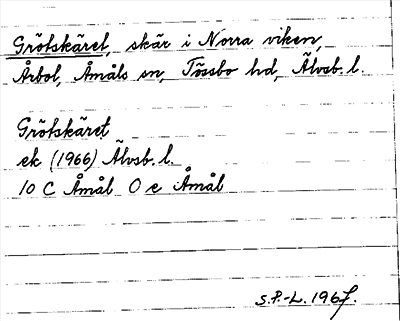 Grötskäret, skär i Norra viken,
Årbol, Åmåls sn, Tössbo hd, Älvsb. l.
Grötskäret
ek (1966) Älvsb. l.
10 C Åmål O e Åmål
S.P.-L. 1967.